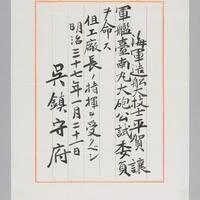 海軍造船大技士平賀讓
軍艦臺南丸大砲公試委員
ヲ命ス
但工廠長ノ指揮ヲ受クベシ
明治三十七年一月二十一日
吳鎮守府